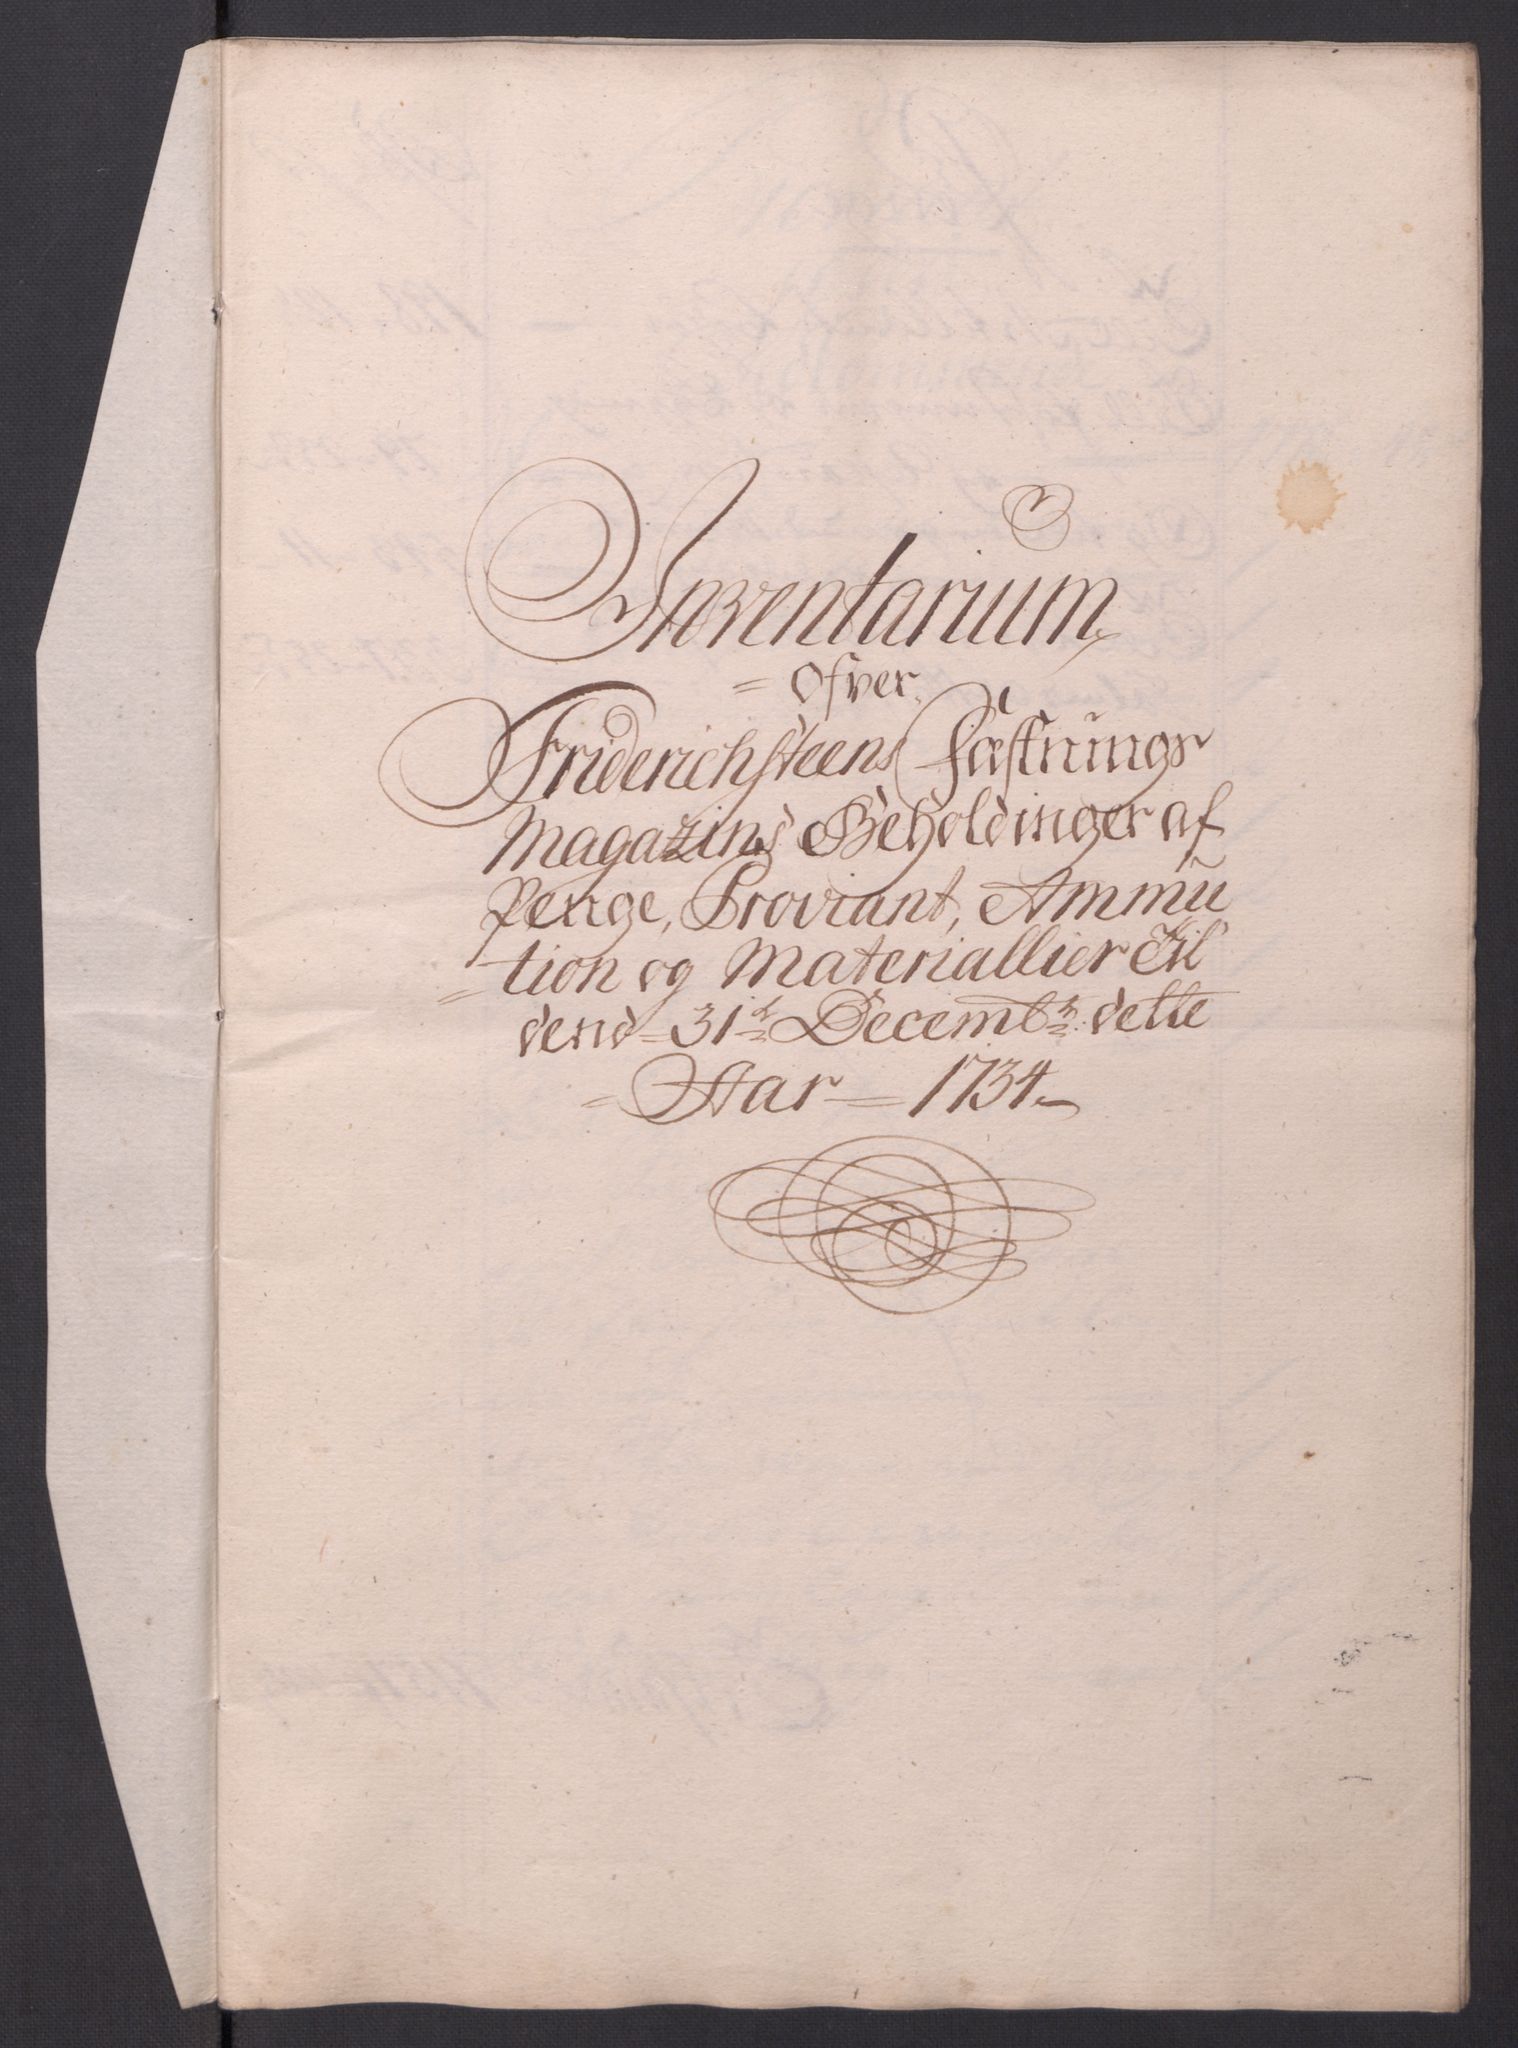 Inventarium
= Ofver
Friderichsteens Fæstnings
Magazins Beholdinger af
Penge, Proviant, Ammu
= tion og Materiallier Til
dend = 31t Decembr: dette
= Aar = 1734.